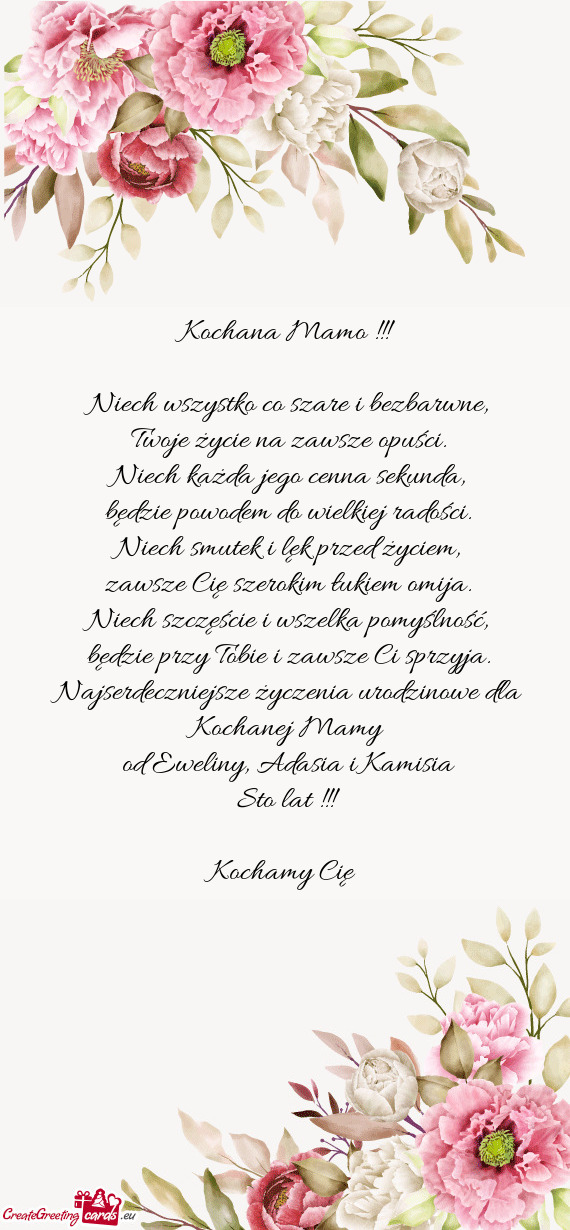 Kochana Mamo !!!
Niech wszystko co szare i bezbarwne,
Twoje życie na zawsze opuści.
Niech każda jego cenna sekunda,
będzie powodem do wielkiej radości.
Niech smutek i lęk przed życiem,
zawsze Cię szerokim łukiem omija.
Niech szczęście i wszelka pomyślność,
będzie przy Tobie i zawsze Ci sprzyja.
Najserdeczniejsze życzenia urodzinowe dla
Kochanej Mamy
od Eweliny, Adasia i Kamisia
Sto lat !!!
Kochamy Cię
CreateGreeting cards .eu